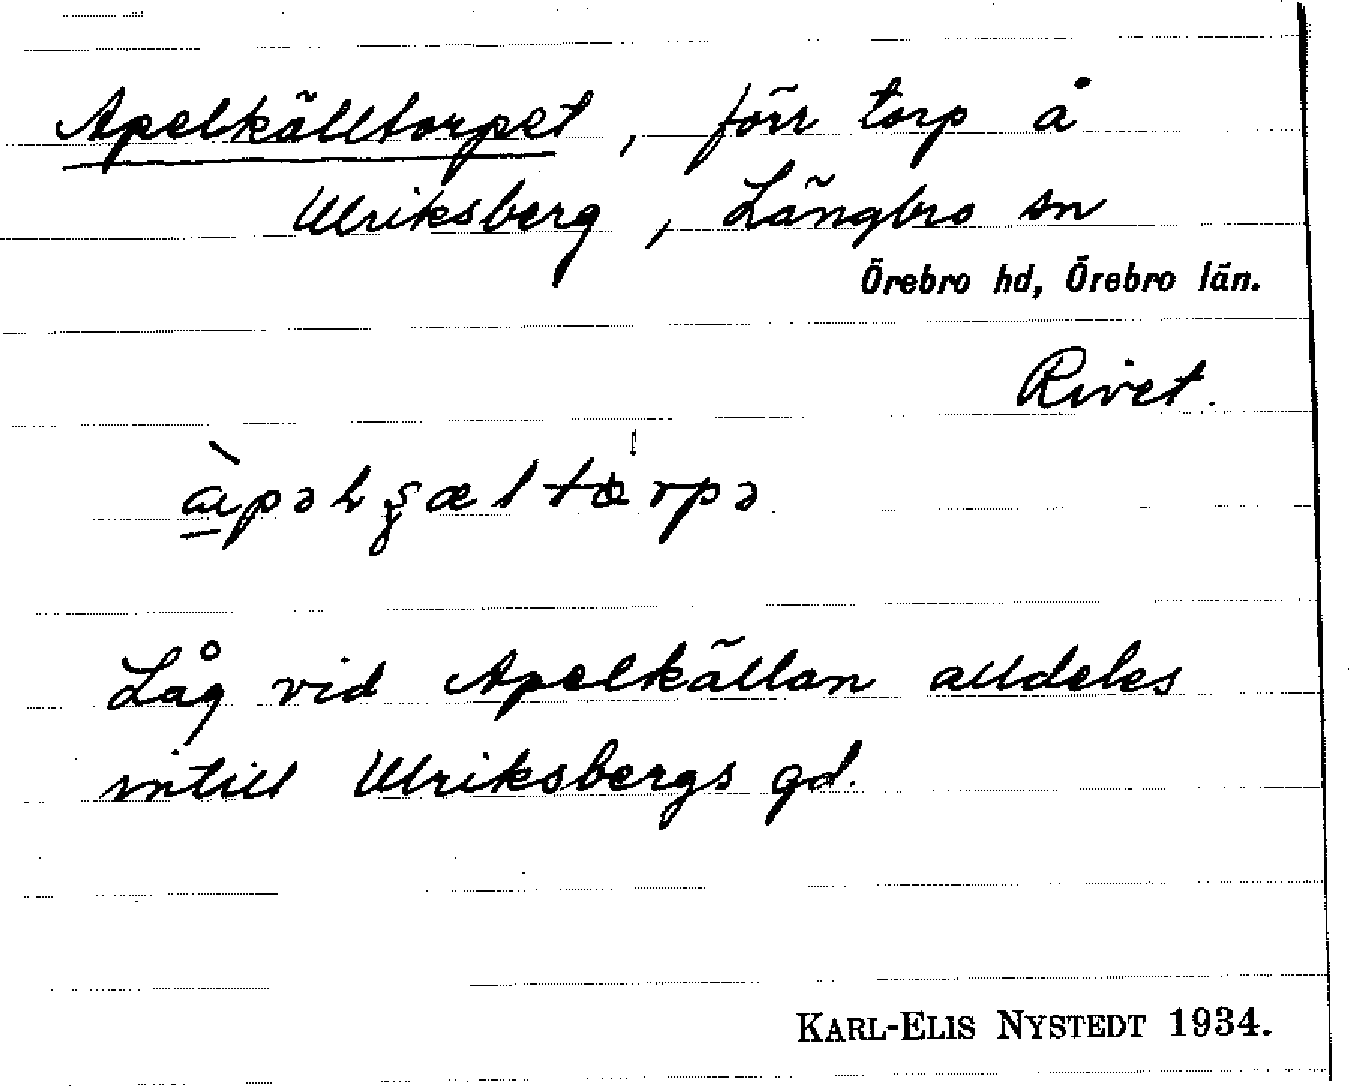 Apelkälltorpet, förr torp å
Ulriksberg, Längbro sn
Örebro hd, Örebro län.
Rivet.
Låg vid Apelkällan alldeles
intill Ulriksbergs gd.
KARL-ELIS NYSTEDT 1934.